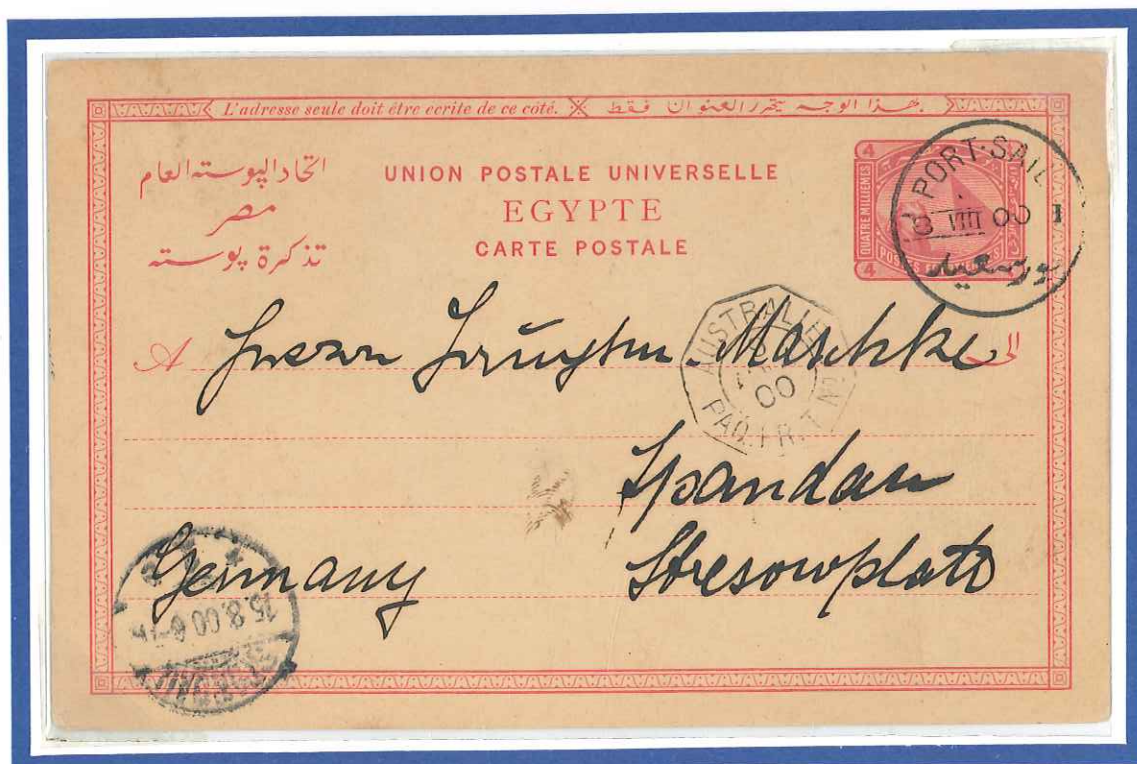 L'adresse seule doit être ecrite de ce côté. بهذا الوجه يتحرر العنوان فقط
اتحاد البوسته العام
مصر
تذكرة بوسته
UNION POSTALE UNIVERSELLE
EGYPTE
CARTE POSTALE
4
QUATRE MILLIEMES
POSTES
4
PORT-SAID
8 VIII 00 1
بورسعيد
A Maschke الى
AUSTRALIE
00
PAQ. FR. T No.
Spandau
Germany Stresowplatz
15.8.00 6-7N
SPANDAU